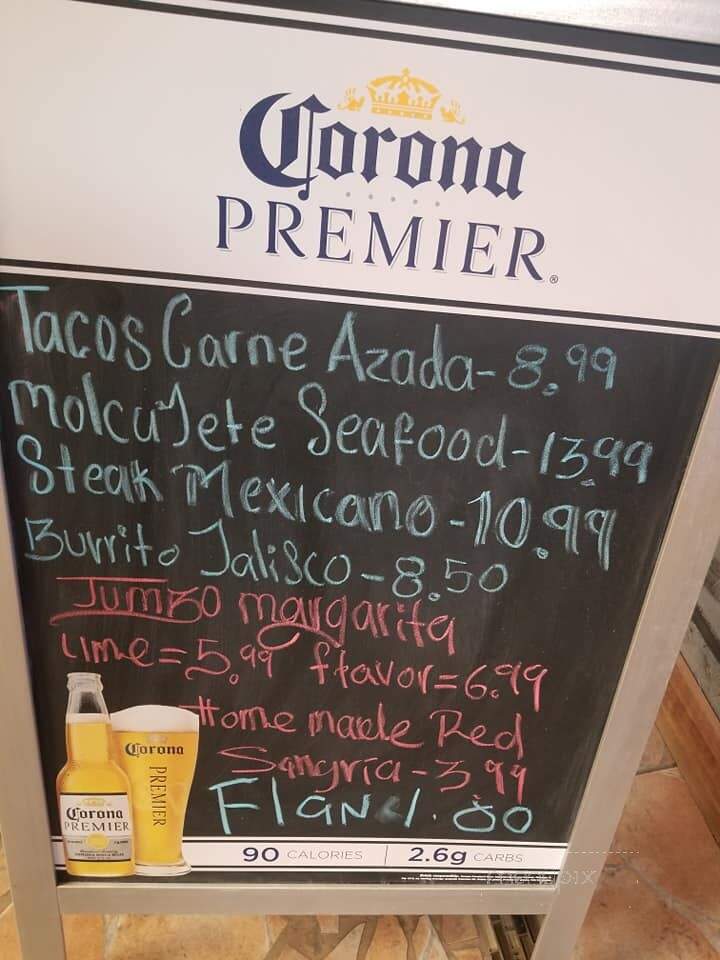 Corona
PREMIER®
Tacos Carne Azada-8.99
molcaJete Seafood-13.99
Steak Mexicano-10.99
Burrito Jalisco-8.50
Jumbo margarita
Lime=5.99 flavor=6.99
Home made Red
Sangria-3.99
Flan 1.00
Corona
PREMIER
Corona
PREMIER
90 CALORIES | 2.6g CARBS